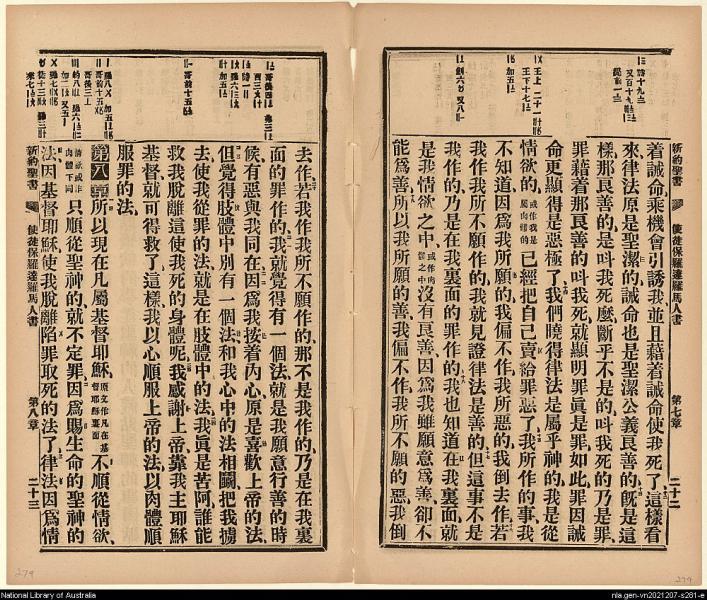 新約聖書
使徒保羅達羅馬人書
第七章
二十二
着誡命乘機會引誘我並且藉着誡命使我死了這樣看
來律法原是聖潔的誡命也是聖潔公義良善的旣是這
樣那良善的是叫我死麽斷乎不是的叫我死的乃是罪
罪藉着那良善的叫我死就顯明罪眞是罪如此罪因誡
命更顯得是惡極了我們曉得律法是屬乎神的我是從
情欲的或作我是屬肉體的已經把自己賣給罪惡了我所作的事我
不知道因爲我所願的我偏不作我所惡的我倒去作若
我作我所不願作的我就見證律法是善的但這事不是
我作的乃是在我裏面的罪作的我也知道在我裏面就
是我情欲之中或作肉體之中沒有良善因爲我雖願意爲善卻不
能爲善所以我所願的善我偏不作我所不願的惡我倒
去作若我作我所不願作的那不是我作的乃是在我裏
面的罪作的我就覺得有一個法就是我願意行善的時
候有惡與我同在因爲我按着內心原是喜歡上帝的法
但覺得肢體中別有一個法和我心中的法相鬭把我擄
去使我從罪的法就是在肢體中的法我眞是苦阿誰能
救我脫離這使我死的身體呢我感謝上帝靠我主耶穌
基督就可得救了這樣我以心順服上帝的法以肉體順
服罪的法
第八章所以現在凡屬基督耶穌原文作凡在基督耶穌裏面不順從情欲
情欲或作肉體下同只順從聖神的就不定罪因爲賜生命的聖神的
法因基督耶穌使我脫離陷罪取死的法了律法因爲情
新約聖書
使徒保羅達羅馬人書
第八章
二十三
279
279
National Library of Australia
nla.gen-vn2021207-s281-e